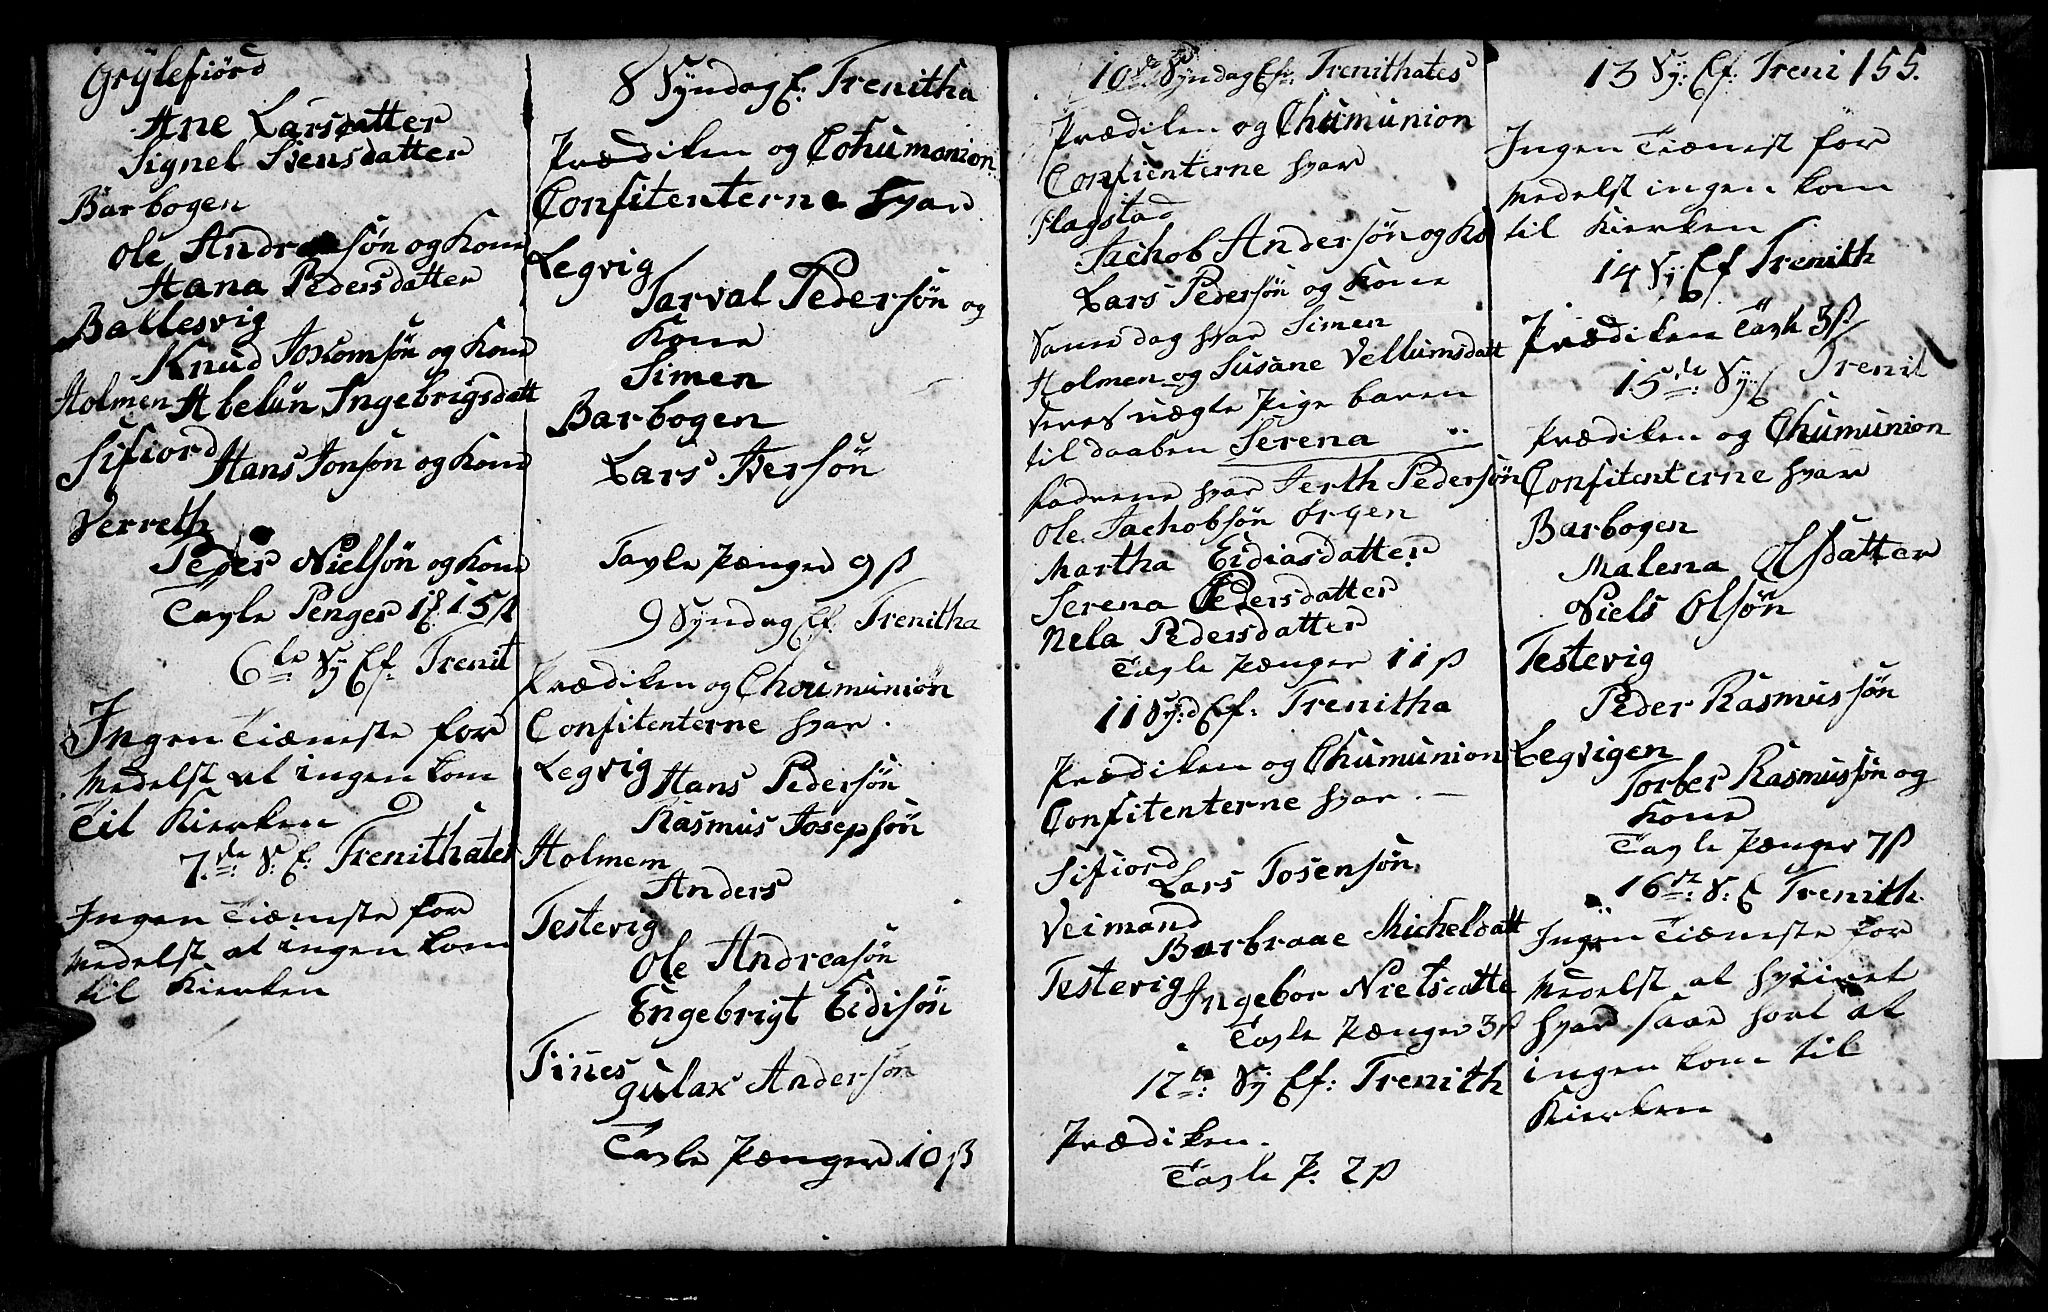 Grÿlefiörd
Ane Larsdatter
Signel Siensdatter
Barbogen
Ole Andreasøn og Kone
Hana Pedersdatter
Ballesvig
Knud Joxomsøn og Kone
Holmen Abelun Ingebrigsdatt
Sifiord
Hans Jonsøn og Kone
Verreth
Peder Nielsøn og Kone
Tavle Penger 1 15 ß
6te Sÿ Ef: Trenit
Ingen Tiæniste for
Medelst at ingen kom
Til Kierken
7de S: E: Trenithates
Ingen Tiæniste for
Medelst at ingen kom
til Kierken
8 Syndag E: Trenitha
Prædiken og Cohumonion
Confitenterne hvar
Legvig
Tarval Pedersøn og
Kone
Simen
Barbogen
Lars Iversøn
Tavle Pænger 9 ß
9 Syndag Ef: Trenitha
Prædiken og Choumuniön
Confitenterne hvar.
Legvig Hans Pedersøn
Rasmus Josepsøn
Holmem
Anders
Testevig
Ole Andreasøn
Engebrigt Eidisøn
Finnes
gulax Andersøn
Tavle Pænger 10 ß
10de Syndag Ef: Trenithates
Prædiken og Chumunion
Confienterne hvar
Flagstad
Jachob Andersøn og Ko
Lars Pedersøn og Kone
Same dag hvar Simen
Holmen og Susane Vellumsdatt
Veres uægte Pige baren
til daaben Serena
Faderene hvar Jerth Pedersøn
Ole Jachobsøn Örgen
Martha Eidiasdatter
Serena Pedersdatter
Nela Pedersdatter
Tavle Pænger 11 ß
11 Sy:d Ef: Trenitha
Prædiken og Chumunion
Confitenterne hvar.
Sifiord
Lars Tosensøn
Veimand
Barbraae Micheldatt
Testevig Ingebor Nielsdatte
Tavle Pænger 3 ß
12te: Sÿ Ef: Trenith
Prædiken.
Tavle P. 2 ß
13 Sy: Ef: Treni 155.
Ingen Tiænist for
Medelst ingen kom
til Kierken
14 Sÿ Ef Trenith
Prædiken Tavle 3 ß
15de: Sy: E Trenit
Prædiken og Chumunion
Confitenterne hvar
Barbogen
Malena Olsdatter
Niels Olsøn
Testevig
Peder Rasmussøn
Legvigen
Torber Rasmussøn og
Kone
Tavle Pænger 7 ß
16te: S: E Trenith.
Ingen Tiæniste for
Medelst at
hvar saar at
ingen kom til
Kierken